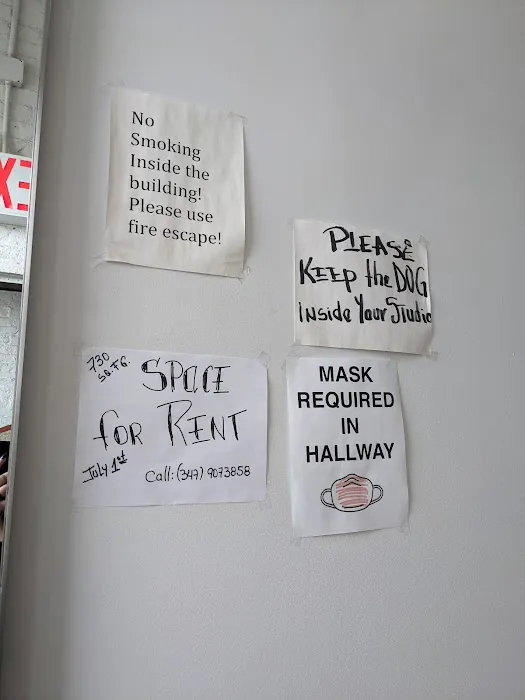 No
Smoking
Inside the
building!
Please use
fire escape!
PLEASE
KEEP the DOG
inside Your Studio
730
SQ.FG.
SPACE
for RENT
July 1st
Call: (347) 9073858
MASK
REQUIRED
IN
HALLWAY